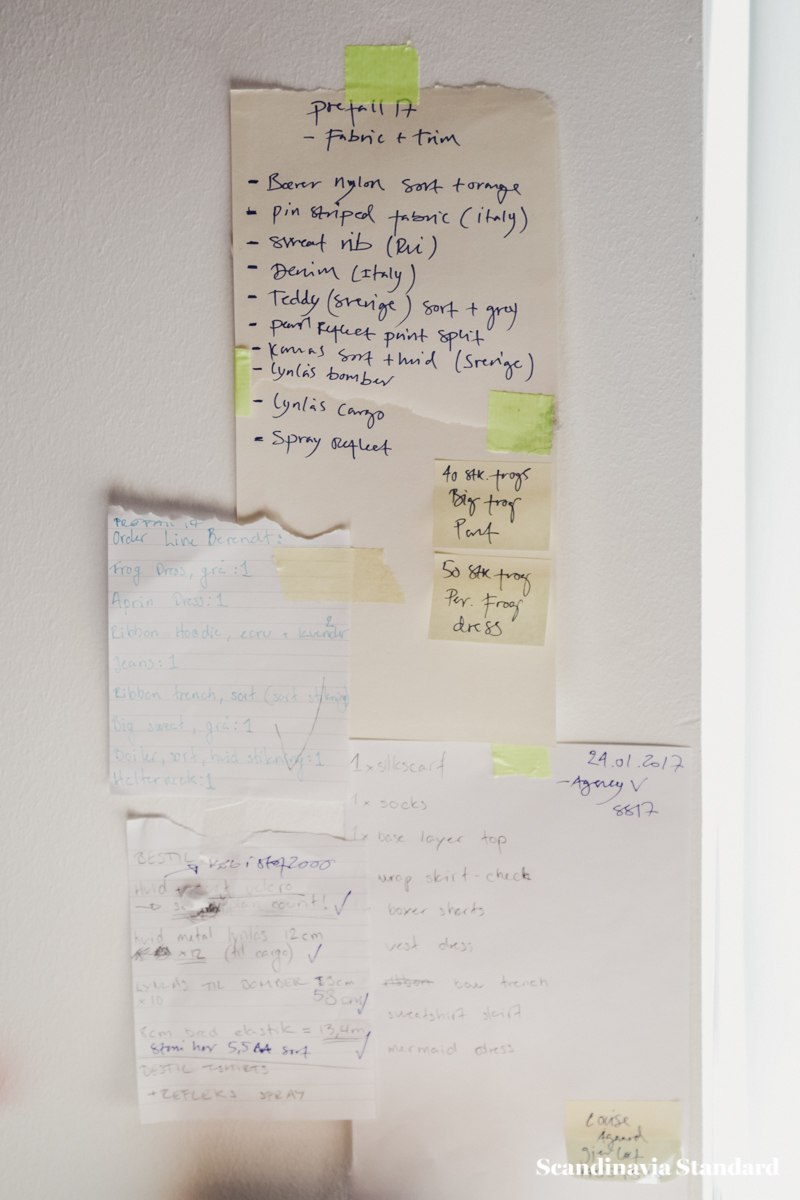 prefall 17
- Fabric + trim
- Bæver nylon sort + orange
- pin striped fabric (italy)
- sweat rib (Rui)
- Denim (Italy)
- Teddy (sverige) sort + grey
- pearl Reflect print split
- kanvas sort + hvid (Sverige)
- Lynlås bomber
- Lynlås cargo
- Spray Reflect
40 stk. frogs
Big frog
Pant
50 stk frog
Per. Frog
dress
PREFALL 17
Order Line Berendt:
Frog Dress, grå: 1
Aprin Dress: 1
Ribbon Hoodie, ecru + lavender 2
Jeans: 1
Ribbon trench, sort (sort stikning)
Big sweat, grå: 1
Boiler, sort, hvid stikning: 1
Halterneck: 1
1x silkscarf
1x socks
1x base layer top
wrap skirt - check
boxer shorts
vest dress
ribbon bow trench
sweatshirt skirt
mermaid dress
24.01.2017
- Agency V
8817
BESTIL
stof2000
Hvid velcro
count!
hvid metal lynlås 12cm
x12 (til cargo)
LYNLÅS TIL BOMBER
x10 58cm
bred elastik = 13,4m
5,5 sort
BESTIL T-SHIRTS
+ REFLEKS SPRAY
Louise
Scandinavia Standard